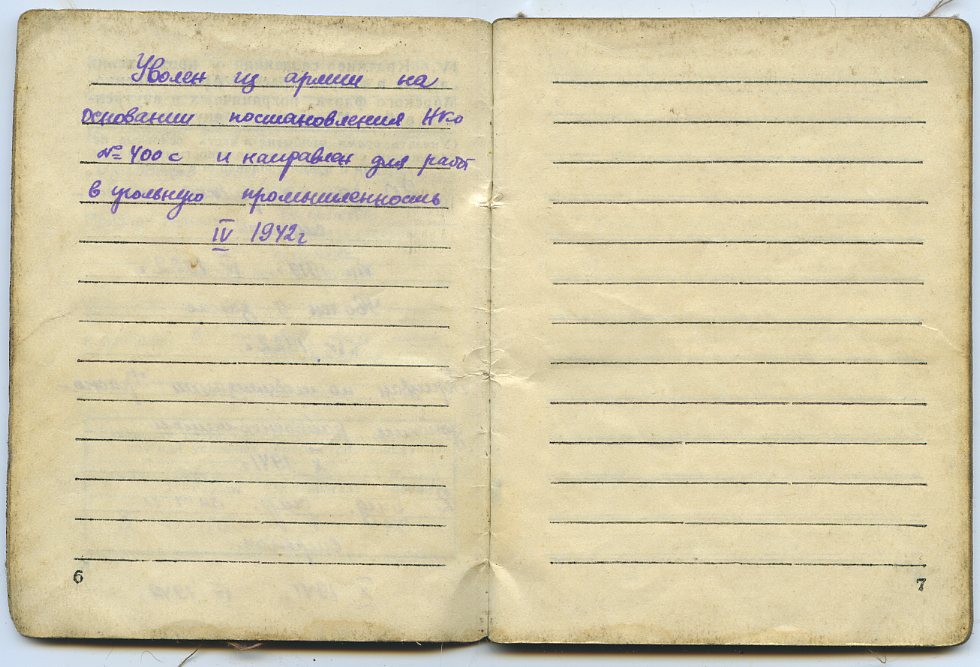 Уволен из армии на
основании постановления НКО
№ 400с и направлен для работ
в угольную промышленность
IV 1942 г
6
7